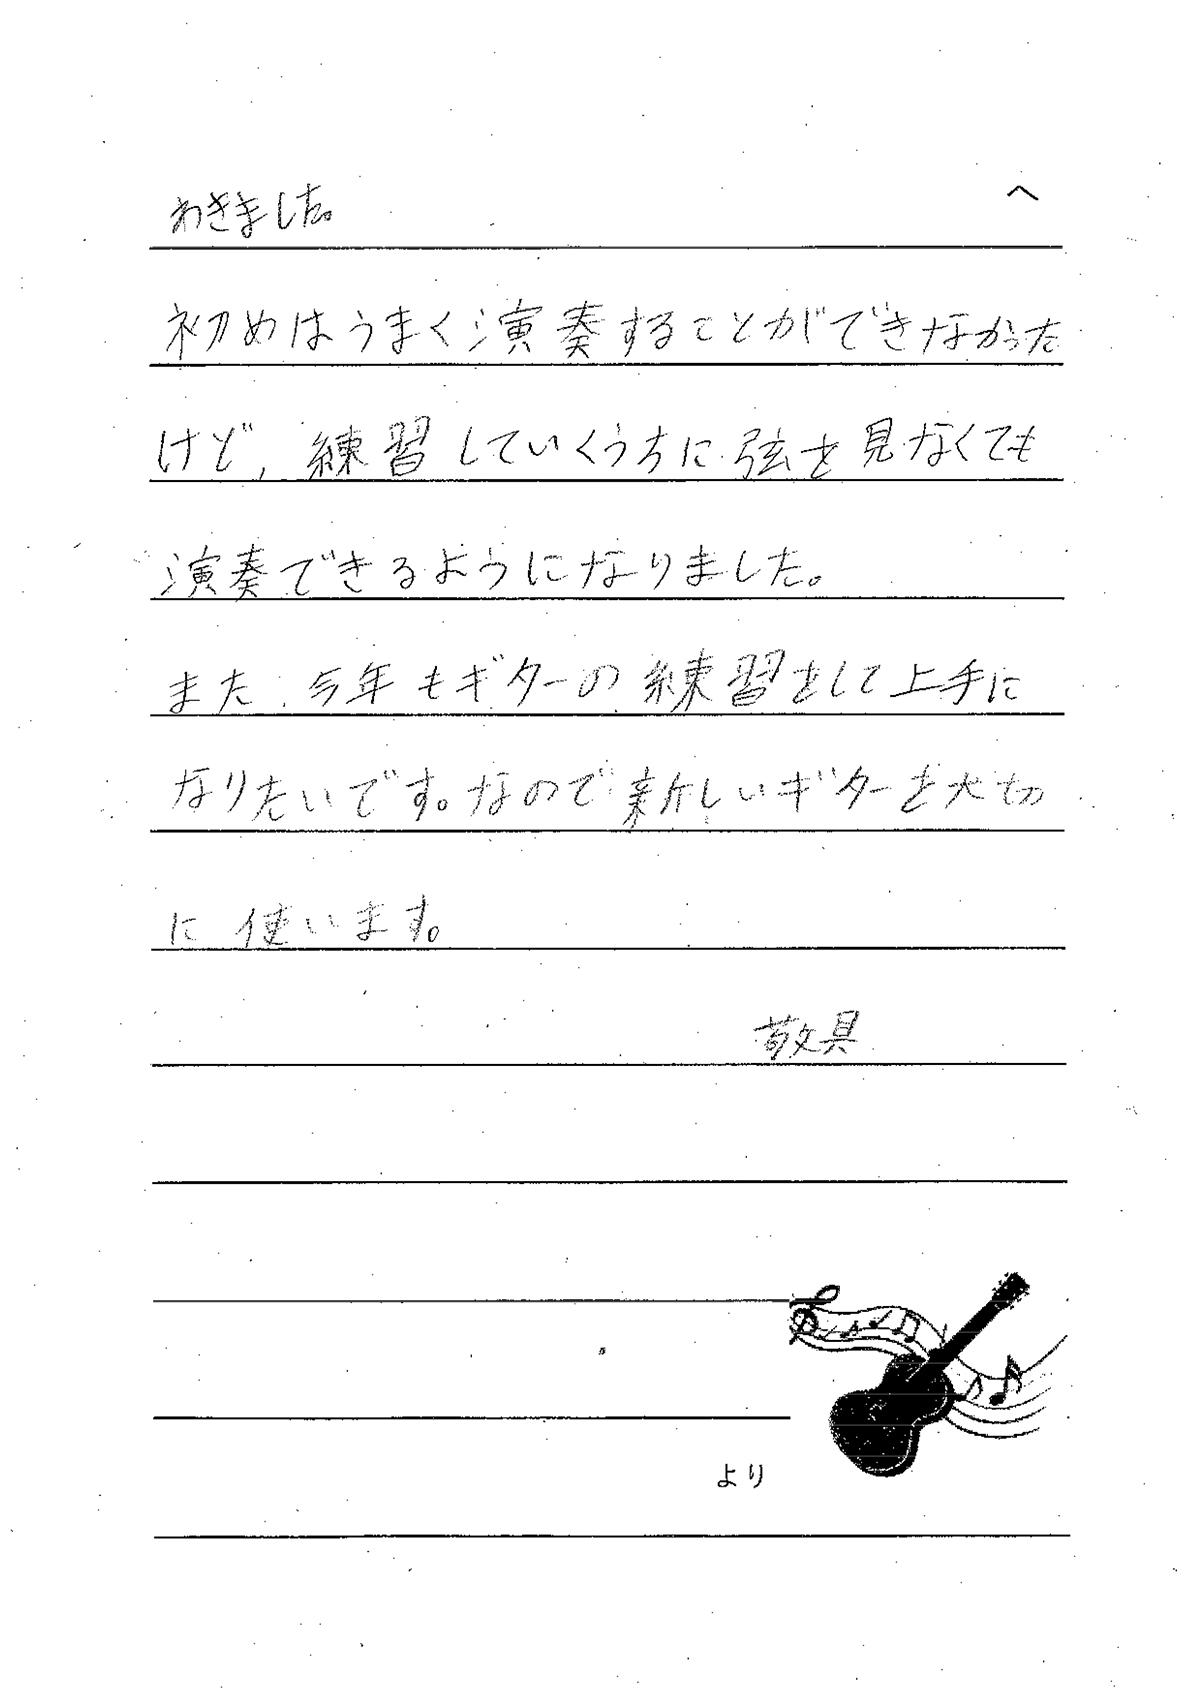 わきました。 へ
初めはうまく演奏することができなかった
けど,練習していくうちに弦を見なくても
演奏できるようになりました。
また、今年もギターの練習をして上手に
なりたいです。なので新しいギターを大切
に使います。
敬具
より